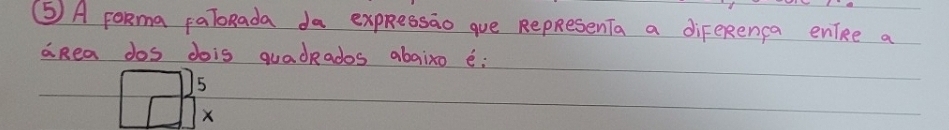 ⑤ A forma fatorada da expressão que representa a diferença entre a
área dos dois quadrados abaixo é:
5
x